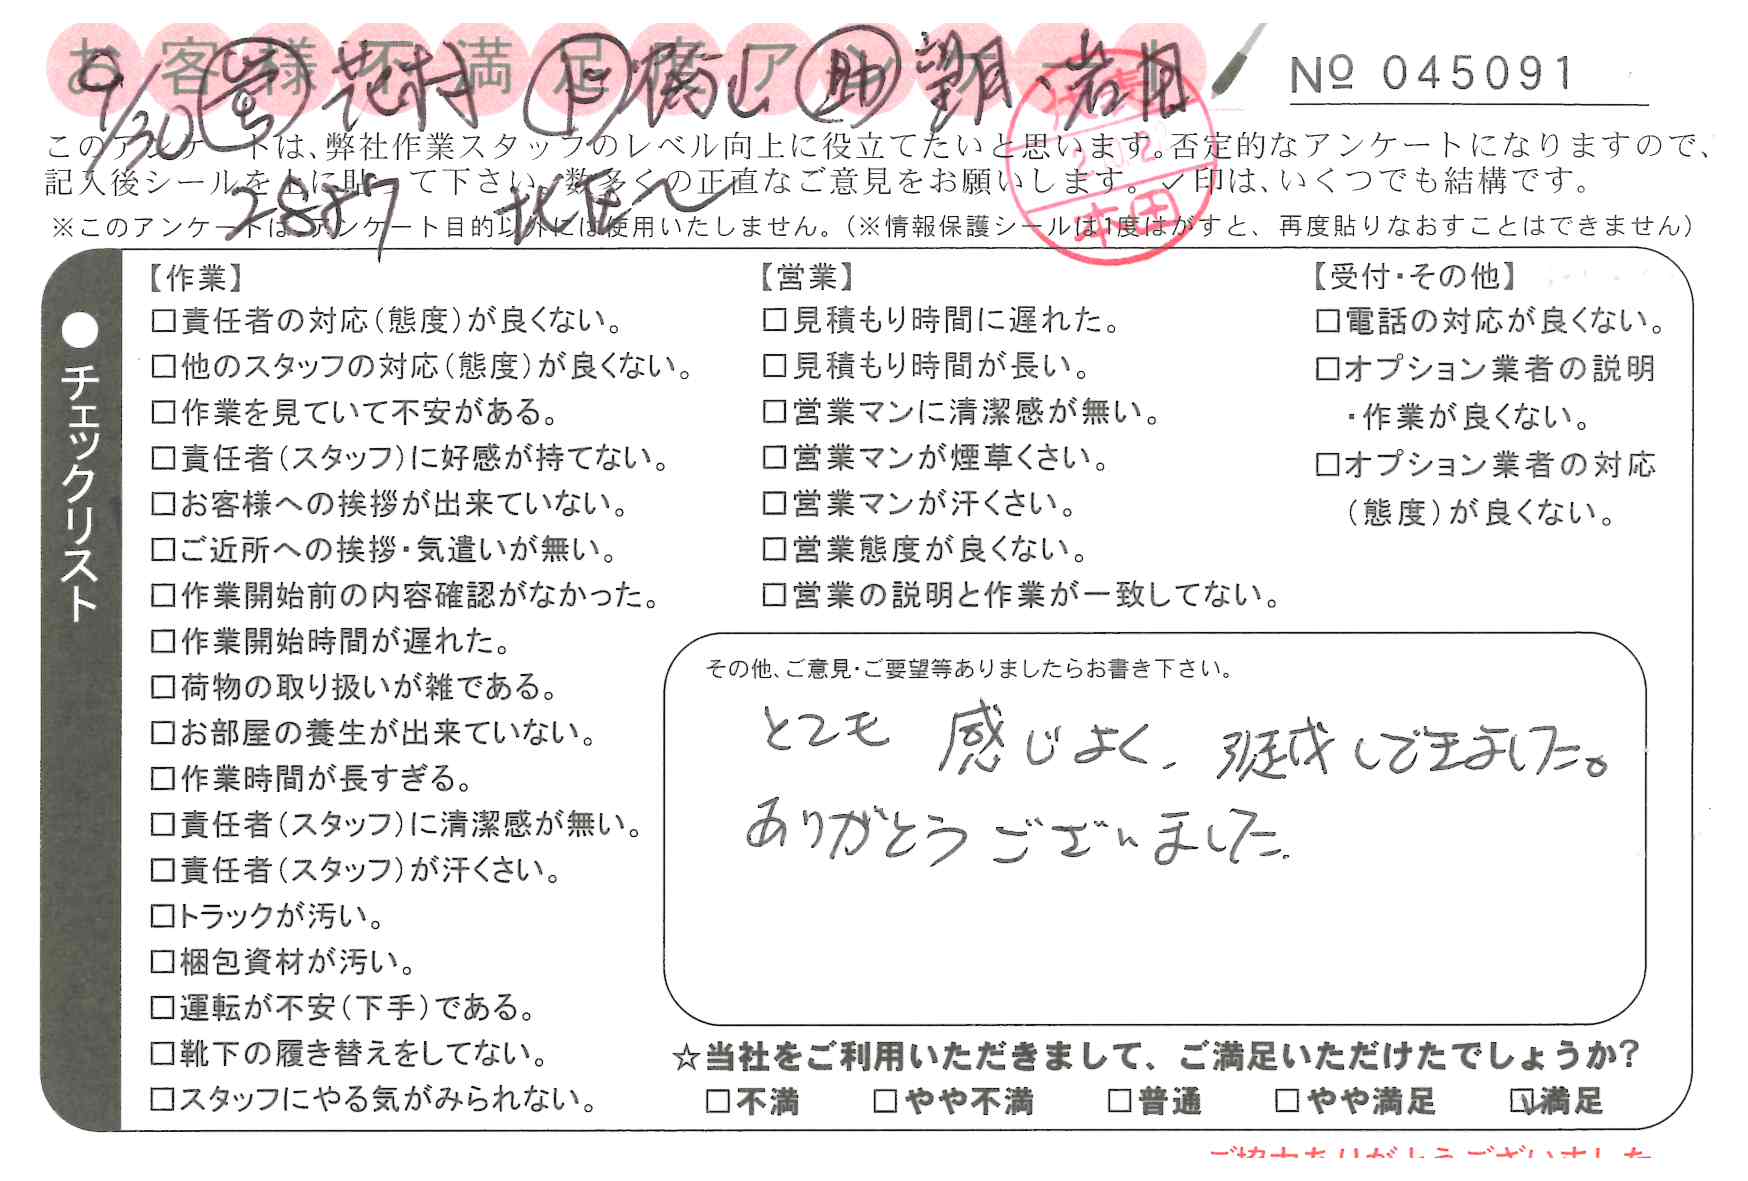 お客様不満足度アンケート
№ 045091
9/30 営 花村 下 横山 助 望月、岩田
2887 北區へ
このアンケートは、弊社作業スタッフのレベル向上に役立てたいと思います。否定的なアンケートになりますので、
記入後シールを上に貼って下さい。数多くの正直なご意見をお願いします。✓印は、いくつでも結構です。
※このアンケートは、アンケート目的以外には使用いたしません。(※情報保護シールは1度はがすと、再度貼りなおすことはできません)
本田
●チェックリスト
【作業】
□責任者の対応(態度)が良くない。
□他のスタッフの対応(態度)が良くない。
□作業を見ていて不安がある。
□責任者(スタッフ)に好感が持てない。
□お客様への挨拶が出来ていない。
□ご近所への挨拶・気遣いが無い。
□作業開始前の内容確認がなかった。
□作業開始時間が遅れた。
□荷物の取り扱いが雑である。
□お部屋の養生が出来ていない。
□作業時間が長すぎる。
□責任者(スタッフ)に清潔感が無い。
□責任者(スタッフ)が汗くさい。
□トラックが汚い。
□梱包資材が汚い。
□運転が不安(下手)である。
□靴下の履き替えをしてない。
□スタッフにやる気がみられない。
【営業】
□見積もり時間に遅れた。
□見積もり時間が長い。
□営業マンに清潔感が無い。
□営業マンが煙草くさい。
□営業マンが汗くさい。
□営業態度が良くない。
□営業の説明と作業が一致してない。
【受付・その他】
□電話の対応が良くない。
□オプション業者の説明
・作業が良くない。
□オプション業者の対応
(態度)が良くない。
その他、ご意見・ご要望等ありましたらお書き下さい。
とても 感じよく、 しできました。
ありがとうございました。
☆当社をご利用いただきまして、ご満足いただけたでしょうか?
□不満 □やや不満 □普通 □やや満足 ☑満足
ご協力ありがとうございました